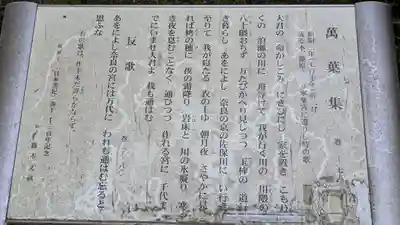 萬葉集 巻一
或る本、藤原京より寧楽宮に遷る時の歌
大君の 命かしこみ にきびにし 家を放き こもり
くの 泊瀬の川に 舟浮けて 我が行く川の 川隈の
八十隈おちず 万たびかへり見しつつ 玉桙の 道行
き暮らし あをによし 奈良の京の佐保川に い行き
至りて 我が寝たる 衣の上ゆ 朝月夜 さやかに見
れば 栲の穂に 夜の霜降り 岩床と 川の氷凝り 寒
き夜を息むことなく 通ひつつ 作れる宮に 千代ま
でに いませ大君よ 我も通はむ
反歌
あをによし奈良の宮には万代に われも通はむ忘ると
思ふな
右の歌は、作主未だ詳らかならず。